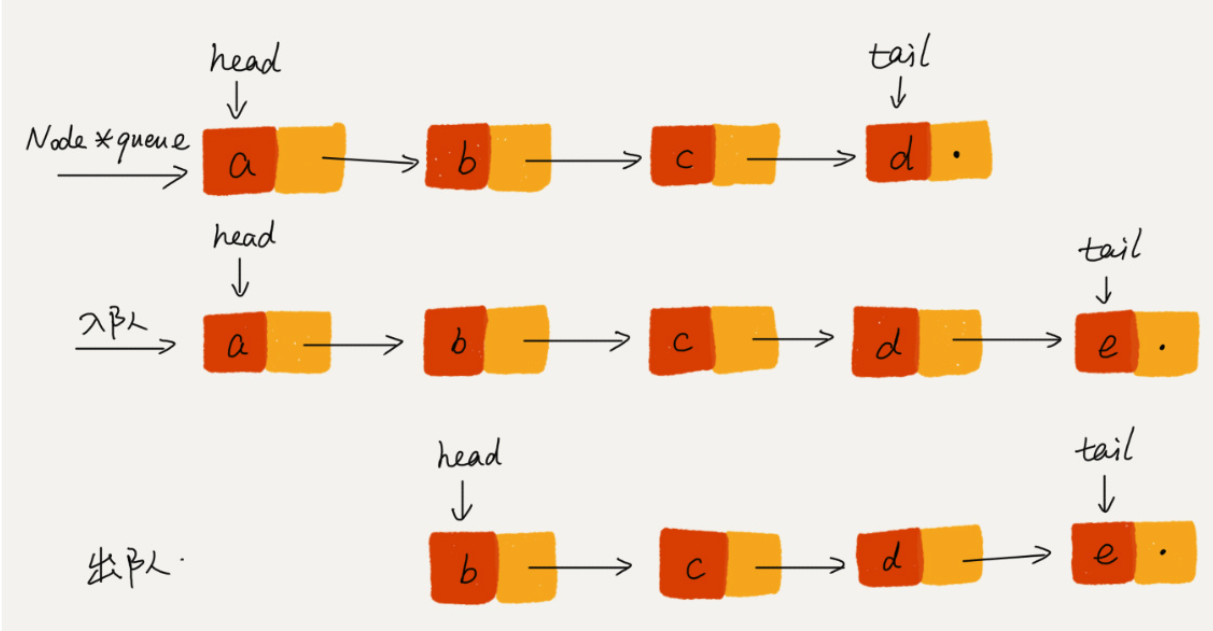 head tail
Node *queue
a b c d
head tail
入队
a b c d e
head tail
出队
b c d e